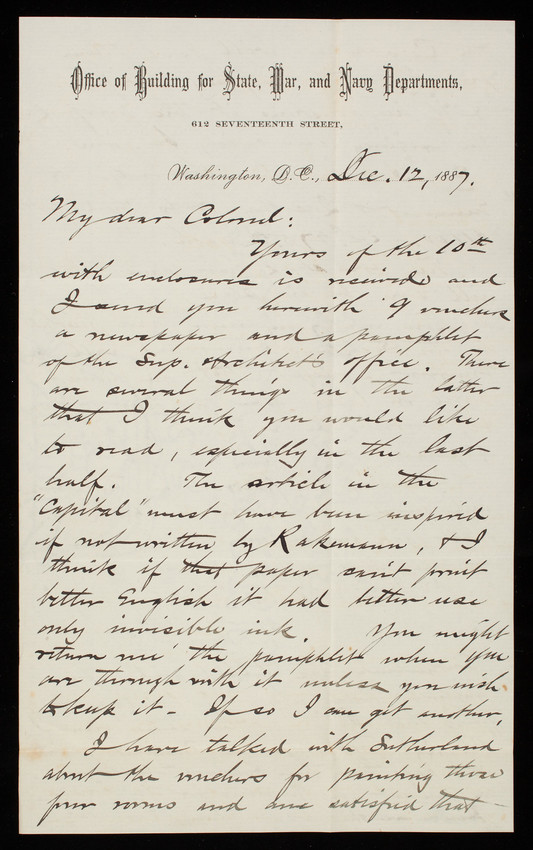 Office of Building for State, War, and Navy Departments,
612 SEVENTEENTH STREET,
Washington, D.C., Dec. 12, 1887.
My dear Colonel:
Yours of the 10th
with enclosures is received and
I send you herewith 9 vouchers
a newspaper and a pamphlet
of the Sup. Architect's office. There
are several things in the latter
that I think you would like
to read, especially in the last
half. The article in the
"Capital" must have been inspired
if not written by Rakemann, & I
think if that paper can't print
better English it had better use
only invisible ink. You might
return me the pamphlet when you
are through with it unless you wish
to keep it - If so I can get another.
I have talked with Sutherland
about the vouchers for painting those
four rooms and am satisfied that -